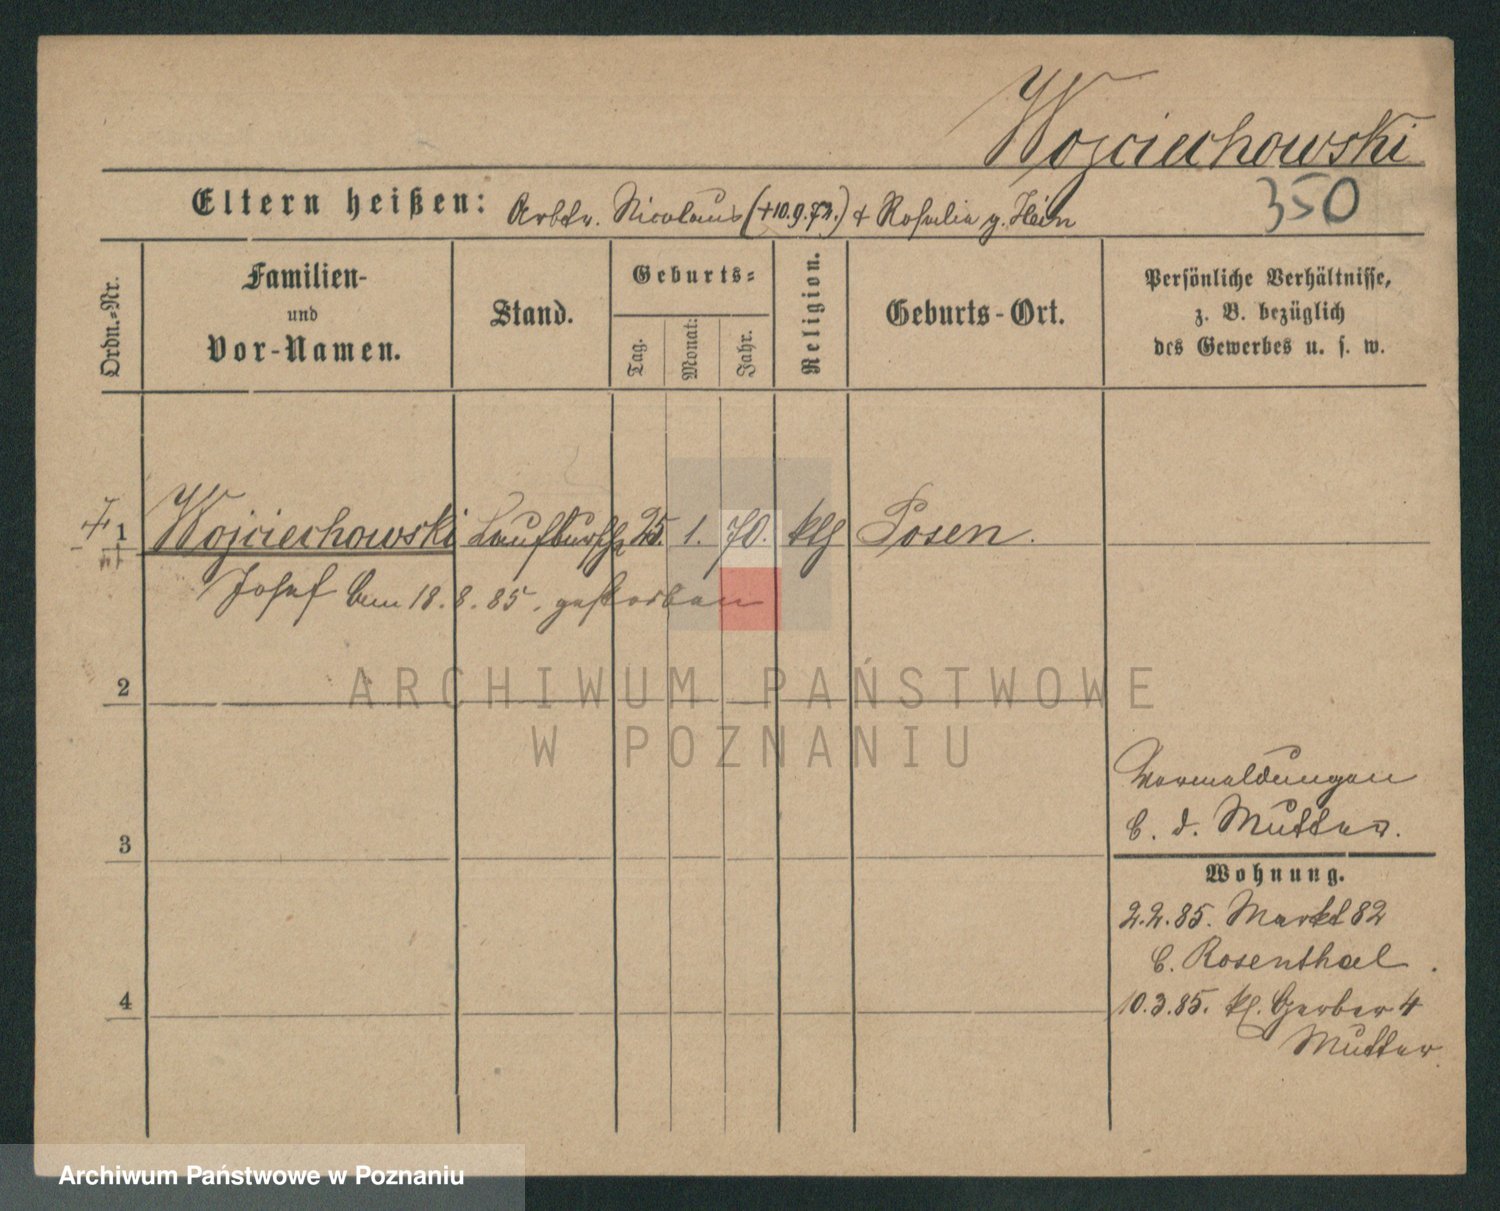 Wojciechowski
350
Eltern heißen: Arbtr. Nicolaus (+10.9.72.) & Rosalia g. Hein
Ordn.-Nr.
Familien-
und
Vor-Namen.
Stand.
Geburts-
Tag.
Monat:
Jahr.
Religion.
Geburts-Ort.
Persönliche Verhältnisse,
z. B. bezüglich
des Gewerbes u. s. w.
1 Wojciechowski Laufbursche 25. 1. 70. klg Posen.
Josef am 18.8.85. gestorben
2
ARCHIWUM PAŃSTWOWE
W POZNANIU
b. d. Mutter.
3
Wohnung.
2.2.85. Markt 82
b. Rosenthal.
4
10.3.85. kl. Gerber 4
Mutter
Archiwum Państwowe w Poznaniu